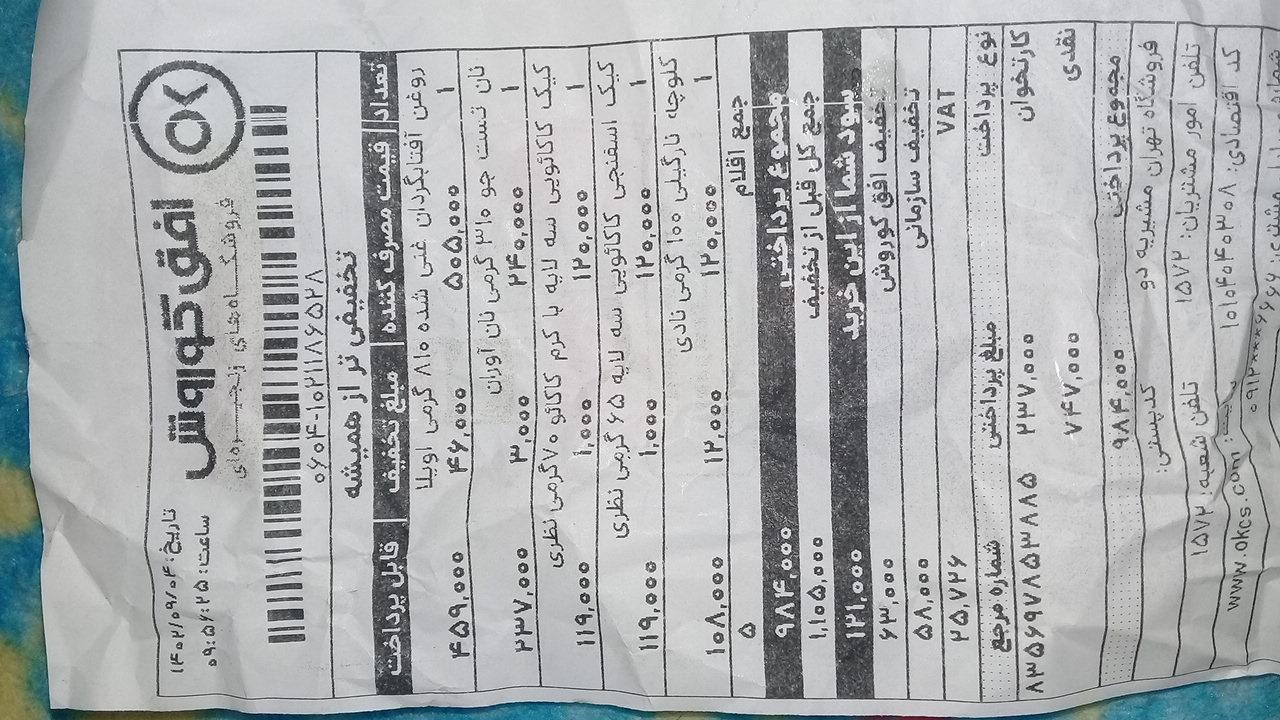 افق کوروش
فروشگاه‌های زنجیره‌ای
تاریخ: ۱۴۰۲/۰۹/۰۴
ساعت: ۰۹:۵۶:۲۵
۰۶۰۴-۱۰۲۱۱۸۶۵۲۸
تخفیفی تر از همیشه
تعداد قیمت مصرف کننده مبلغ تخفیف قابل پرداخت
روغن آفتابگردان غنی شده ۸۱۰ گرمی اویلا
۱ ۵۰۵,۰۰۰ ۴۶,۰۰۰ ۴۵۹,۰۰۰
نان تست جو ۳۱۰ گرمی نان آوران
۱ ۲۴۰,۰۰۰ ۳,۰۰۰ ۲۳۷,۰۰۰
کیک کاکائویی سه لایه با کرم کاکائو ۷۰گرمی نظری
۱ ۱۲۰,۰۰۰ ۱,۰۰۰ ۱۱۹,۰۰۰
کیک اسفنجی کاکائویی سه لایه ۶۵ گرمی نظری
۱ ۱۲۰,۰۰۰ ۱,۰۰۰ ۱۱۹,۰۰۰
کلوچه نارگیلی ۱۰۰ گرمی نادی
۱ ۱۲۰,۰۰۰ ۱۲,۰۰۰ ۱۰۸,۰۰۰
جمع اقلام ۵
مجموع پرداختی ۹۸۴,۰۰۰
جمع کل قبل از تخفیف ۱,۱۰۵,۰۰۰
سود شما از این خرید ۱۲۱,۰۰۰
تخفیف افق کوروش ۶۳,۰۰۰
تخفیف سازمانی ۵۸,۰۰۰
VAT ۲۵,۷۲۶
نوع پرداخت مبلغ پرداختی شماره مرجع
کارتخوان ۲۳۷,۰۰۰ ۸۳۵۶۹۷۸۵۳۸۸۵
نقدی ۷۴۷,۰۰۰
مجموع پرداختی ۹۸۴,۰۰۰
فروشگاه تهران مشیریه دو کدپستی:
تلفن امور مشتریان: ۱۵۷۲ تلفن شعبه: ۱۵۷۲
کد اقتصادی: ۱۰۱۰۴۰۴۰۳۰۸ www.okcs.com